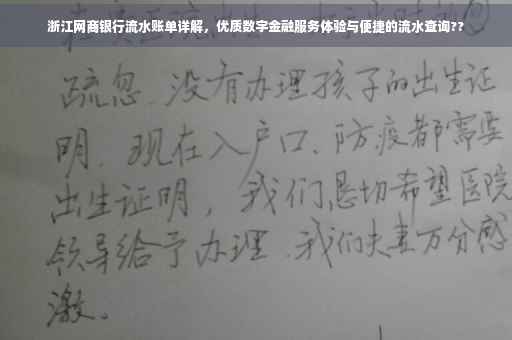 浙江网商银行流水账单详解，优质数字金融服务体验与便捷的流水查询??
疏忽、没有办理孩子的出生证
明、现在入户口、防疫都需要
出生证明，我们恳切希望医院
领导给予办理、我们夫妻万分感
激。